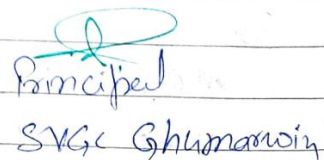 Principal
SVGC Ghumarwin